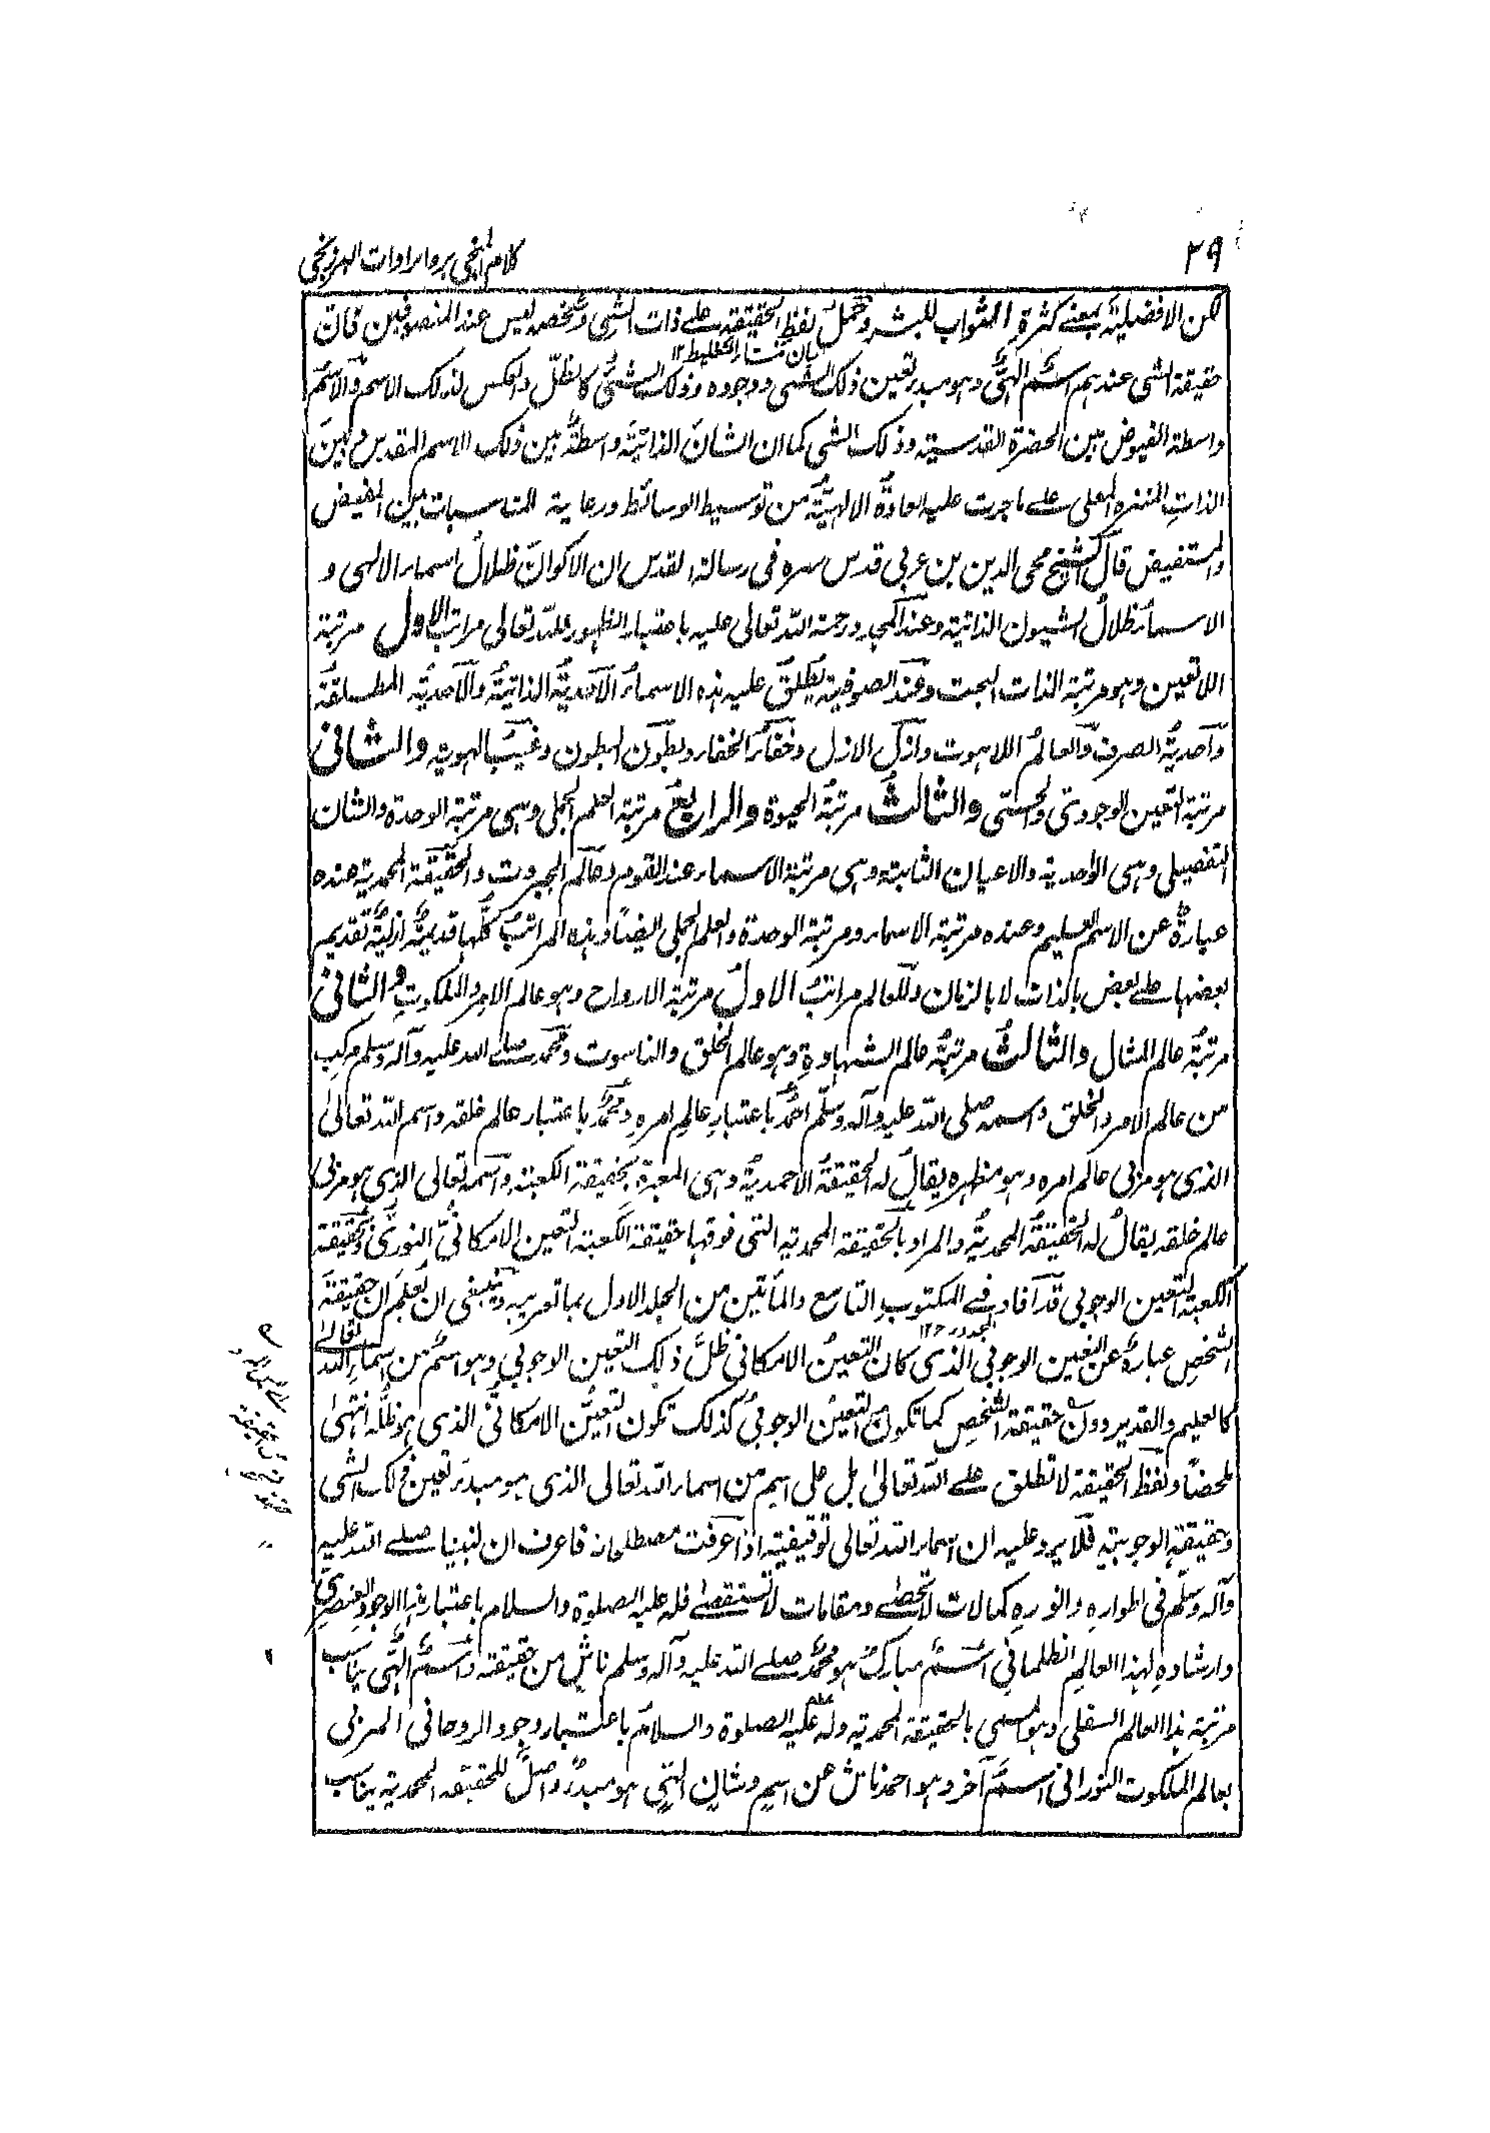 ٢٩
كلام المنجى برد ايرادات البرزنجى
لكن الافضلية بمعنى كثرة الثواب للبشر وحمل لفظ الحقيقة على ذات الشى وتشخصه ليس عند المتصوفين فان
بيان منشأ التغليط ١٢
حقيقة الشى عندهم اسم الهى وهو مبدء تعين ذلك الشى ووجوده وذلك الشى كالظل والعكس لذلك الاسم والاسم
واسطة الفيوض بين الحضرة القدسية وذلك الشى كما ان الشان الذاتية واسطة بين ذلك الاسم المقدس وبين
الذات المنزه المعلى على ما جرت عليه العادة الالهية من توسيط الوسائط ورعاية المناسبات بين المفيض
والمستفيض قال الشيخ محى الدين بن عربى قدس سره فى رسالة القدس ان الاكوان ظلال اسماء الالهى و
الاسماء ظلال الشيون الذاتية وعند المجدد رحمة الله تعالى عليه باعتبار الظهور لله تعالى مراتب الاول مرتبة
اللاتعين وهو مرتبة الذات البحت وعند الصوفية يطلق عليه هذه الاسماء الاحدية الذاتية والاحدية المطلقة
واحدية الصرف والعالم اللاهوت وازل الازل وخفاء الخفاء وبطون البطون وغيب الهوية والثانى
مرتبة التعين الوجودى والحسى والثالث مرتبة الحيوة والرابع مرتبة العلم الجملى وهى مرتبة الوحدة والشان
التفصيلى وهى الواحدية والاعيان الثابتة وهى مرتبة الاسماء عند القوم وعالم الجبروت والحقيقة المحمدية عنده
عبارة عن الاسم العليم وعنده مرتبة الاسماء ومرتبة الوحدة والعلم الجملى ايضا وهذه المراتب كلها قديمة ازلية تقديم
بعضها على بعض بالذات لا بالزمان وللعالم مراتب الاول مرتبة الارواح وهو عالم الامر والملكوت والثانى
مرتبة عالم المثال والثالث مرتبة عالم الشهادة وهو عالم الخلق والناسوت ومحمد صلى الله عليه وآله وسلم مركب
من عالم الامر والخلق واسمه صلى الله عليه وآله وسلم احمد باعتبار عالم امره ومحمد باعتبار عالم خلقه واسم الله تعالى
الذى هو مربى عالم امره وهو مظهره يقال له الحقيقة الاحمدية وهى المعبرة بحقيقة الكعبة واسمه تعالى الذى هو مربى
عالم خلقه يقال له الحقيقة المحمدية والمراد بالحقيقة المحمدية التى فوقها حقيقة الكعبة التعين الامكانى النورى وحقيقة
الكعبة التعين الوجوبى قد افاد فى المكتوب التاسع والمأتين من الجلد الاول بما تعريبه وينبغى ان يعلم ان حقيقة
المجدد رح ١٢
الشخص عبارة عن التعين الوجوبى الذى كان التعين الامكانى ظل ذلك التعين الوجوبى وهو اسم من اسماء الله تعالى
كالعليم والقدير وون حقيقة الشخص كما تكون التعين الوجوبى كذلك تكون التعين الامكانى الذى هو ظله انتهى
ملخصا ولفظ الحقيقة لا تطلق على الله تعالى بل على اسم من اسماء الله تعالى الذى هو مبدء تعين ذلك الشى
وحقيقته الوجوبية فلا يرد عليه ان اسماء الله تعالى توقيفية اذا عرفت مصطلحاته فاعرف ان لنبينا صلى الله عليه
وآله وسلم فى اطواره وانوره كمالات لا تحصى ومقامات لا تستقصى فله عليه الصلوة والسلام باعتبار هذا الوجود العنصرى
وارشاده لهذا العالم الظلمانى اسم مبارك هو محمد صلى الله عليه وآله وسلم ناش من حقيقته واسم الهى يناسب
مرتبة هذا العالم السفلى وهو المسمى بالحقيقة المحمدية وله عليه الصلوة والسلام باعتبار وجود الروحانى المربى
بعالم الملكوت النورانى اسم آخر وهو احمد ناش عن اسم وشان الهى هو مبدء واصل للحقيقة المحمدية يناسب